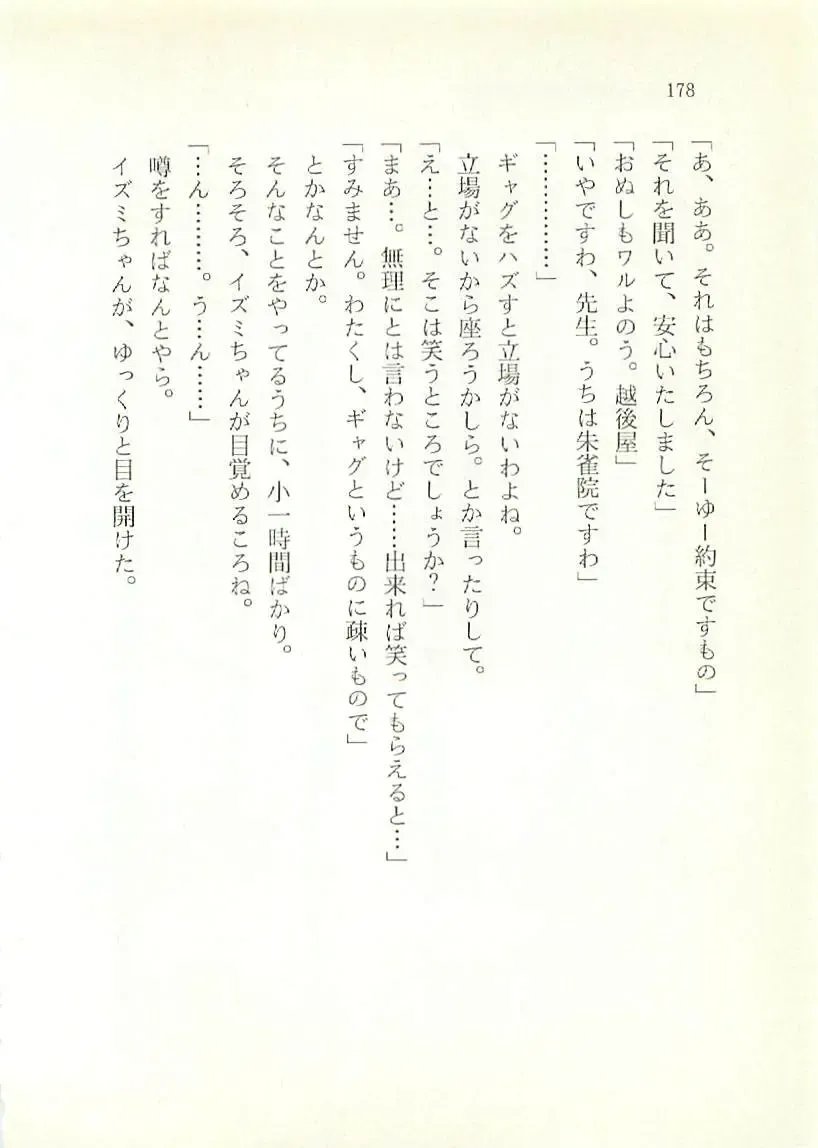 178
「あ、ああ。それはもちろん、そーゆー約束ですもの」
「それを聞いて、安心いたしました」
「おぬしもワルよのう。越後屋」
「いやですわ、先生。うちは朱雀院ですわ」
「……………」
ギャグをハズすと立場がないわよね。
立場がないから座ろうかしら。とか言ったりして。
「え…と…。そこは笑うところでしょうか？」
「まぁ…。無理にとは言わないけど……出来れば笑ってもらえると…」
「すみません。わたくし、ギャグというものに疎いもので」
とかなんとか。
そんなことをやってるうちに、小一時間ばかり。
そろそろ、イズミちゃんが目覚めるころね。
「…ん………。う…ん……」
噂をすればなんとやら。
イズミちゃんが、ゆっくりと目を開けた。